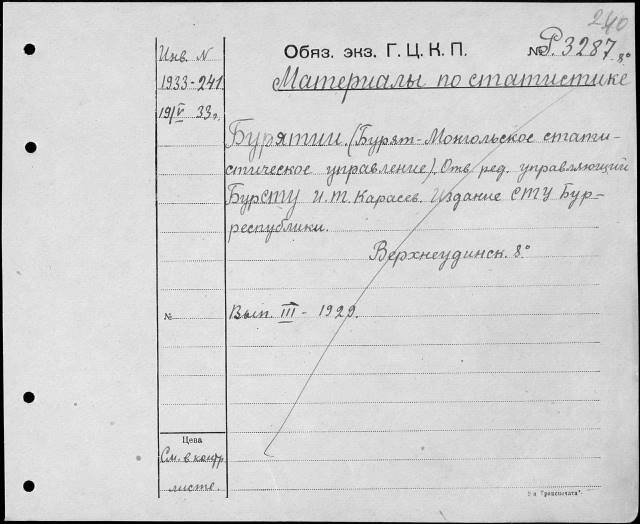 240
Инв. N
Обяз. экз. Г. Ц. К. П.
№ Р. 3287 8°
1933-241
Материалы по статистике
19/V 33г.
Бурятии. (Бурят-Монгольское стати-
стическое управление). Отв. ред. управляющий
БурСТУ И. Т. Карасев. Издание СТУ Бур-
республики.
Верхнеудинск. 8.°
№
Вып. III - 1929.
Цева
См. в контр
листе.
"Транспечата".